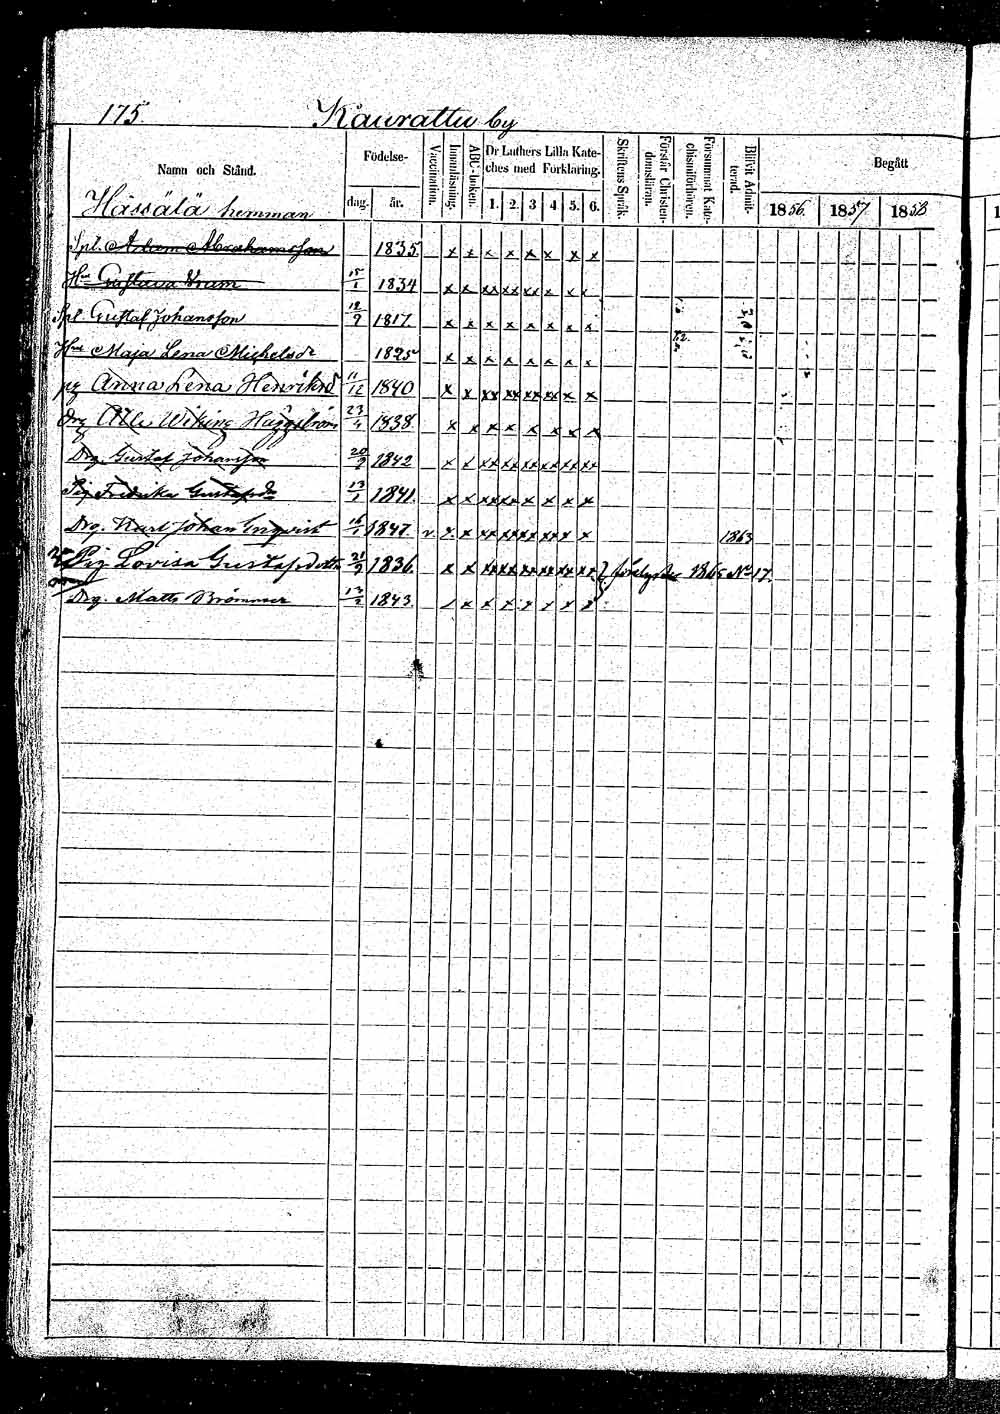 175. Kaurattu by
Namn och Stånd. Födelse- dag. år. Vaccination. Innanläsning. ABC-boken. Dr Luthers Lilla Kateches med Förklaring. 1. 2. 3 4 5. 6. Skriftens Språk. Förstår Christendomsläran. Försummat Katechismiförhören. Blifvit Admitterad. Begått
Hässälä hemman 1856. 1857 1858
Spl. Adam Abrahamsson 1835. x x x x x x x x
Hu Gustava 15/1 1834 x x xx xx xx x x x
Spl. Gustaf Johansson 12/9 1817. x x x x x x x x
Hu Maja Lena Michelsdr 1825 x x x x x x x x
pg Anna Lena Henriksd 11/12 1840 x x xx xx xx xx x x
drg Wiking Häggström 23/4 1838. x x x x x x x x
Drg. Gustaf Johansson 20/9 1842 x x xx xx xx xx xx xx
Pig Fredrika Gustafsdr 13/1 1841. x x xx xx x x x x
Drg. Karl Johan Enqvist 16/1 1847. v. x x xx xx xx xx x x 1863
Pig Lovisa Gustafsdotter 21/9 1836. x x xx xx xx xx xx xx 1865 No 17.
Drg. Matts Brömmer 13/2 1843. x x x x x x x